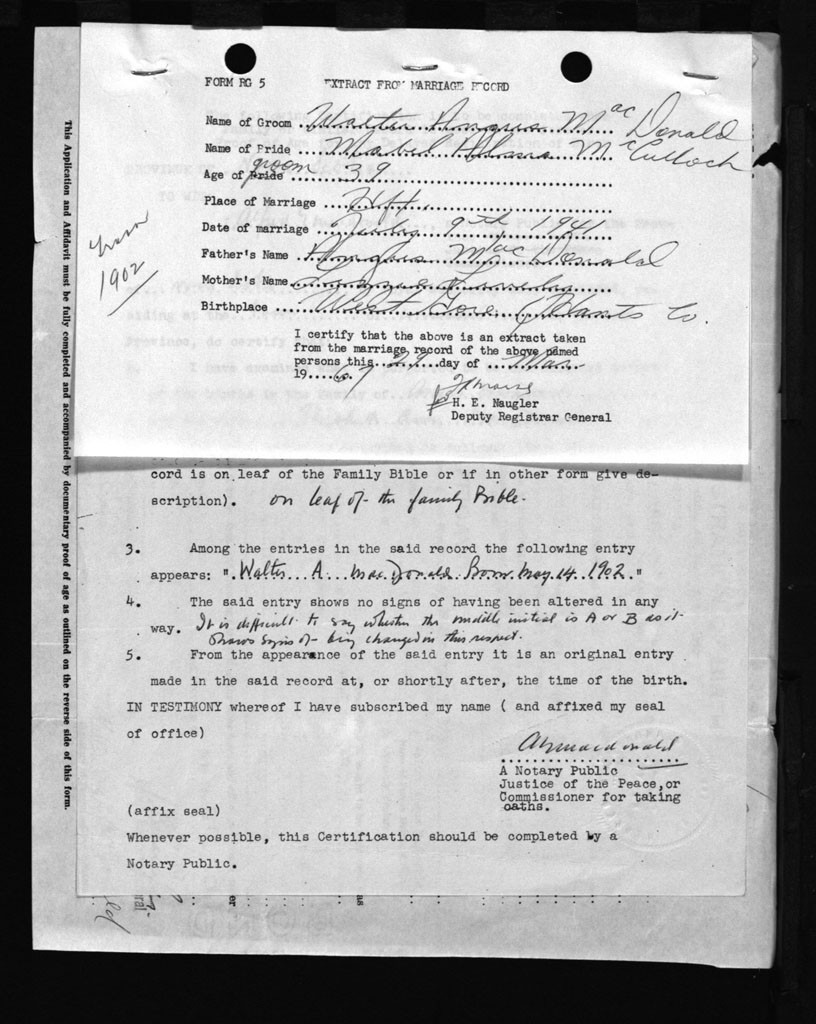 FORM RG 5 EXTRACT FROM MARRIAGE RECORD
Name of Groom Walter Angus MacDonald
Name of Bride Mabel Alma McCulloch
groom
Age of Bride 39
Place of Marriage Hfx.
Date of marriage July 9th 1941
Father's Name Angus MacDonald
Mother's Name
Birthplace West Gore Hants Co.
1902
I certify that the above is an extract taken
from the marriage record of the above named
persons this 29 day of Mar
19 67
H. E. Naugler
Deputy Registrar General
cord is on leaf of the Family Bible or if in other form give de-
scription). on leaf of the family Bible.
3. Among the entries in the said record the following entry
appears: "Walter A. MacDonald Born May 14 1902."
4. The said entry shows no signs of having been altered in any
way. It is difficult to say whether the middle initial is A or B as it
shows signs of being changed in this respect.
5. From the appearance of the said entry it is an original entry
made in the said record at, or shortly after, the time of the birth.
IN TESTIMONY whereof I have subscribed my name ( and affixed my seal
of office)
A Notary Public
Justice of the Peace, or
Commissioner for taking
oaths.
(affix seal)
Whenever possible, this Certification should be completed by a
Notary Public.
This Application and Affidavit must be fully completed and accompanied by documentary proof of age as outlined on the reverse side of this form.